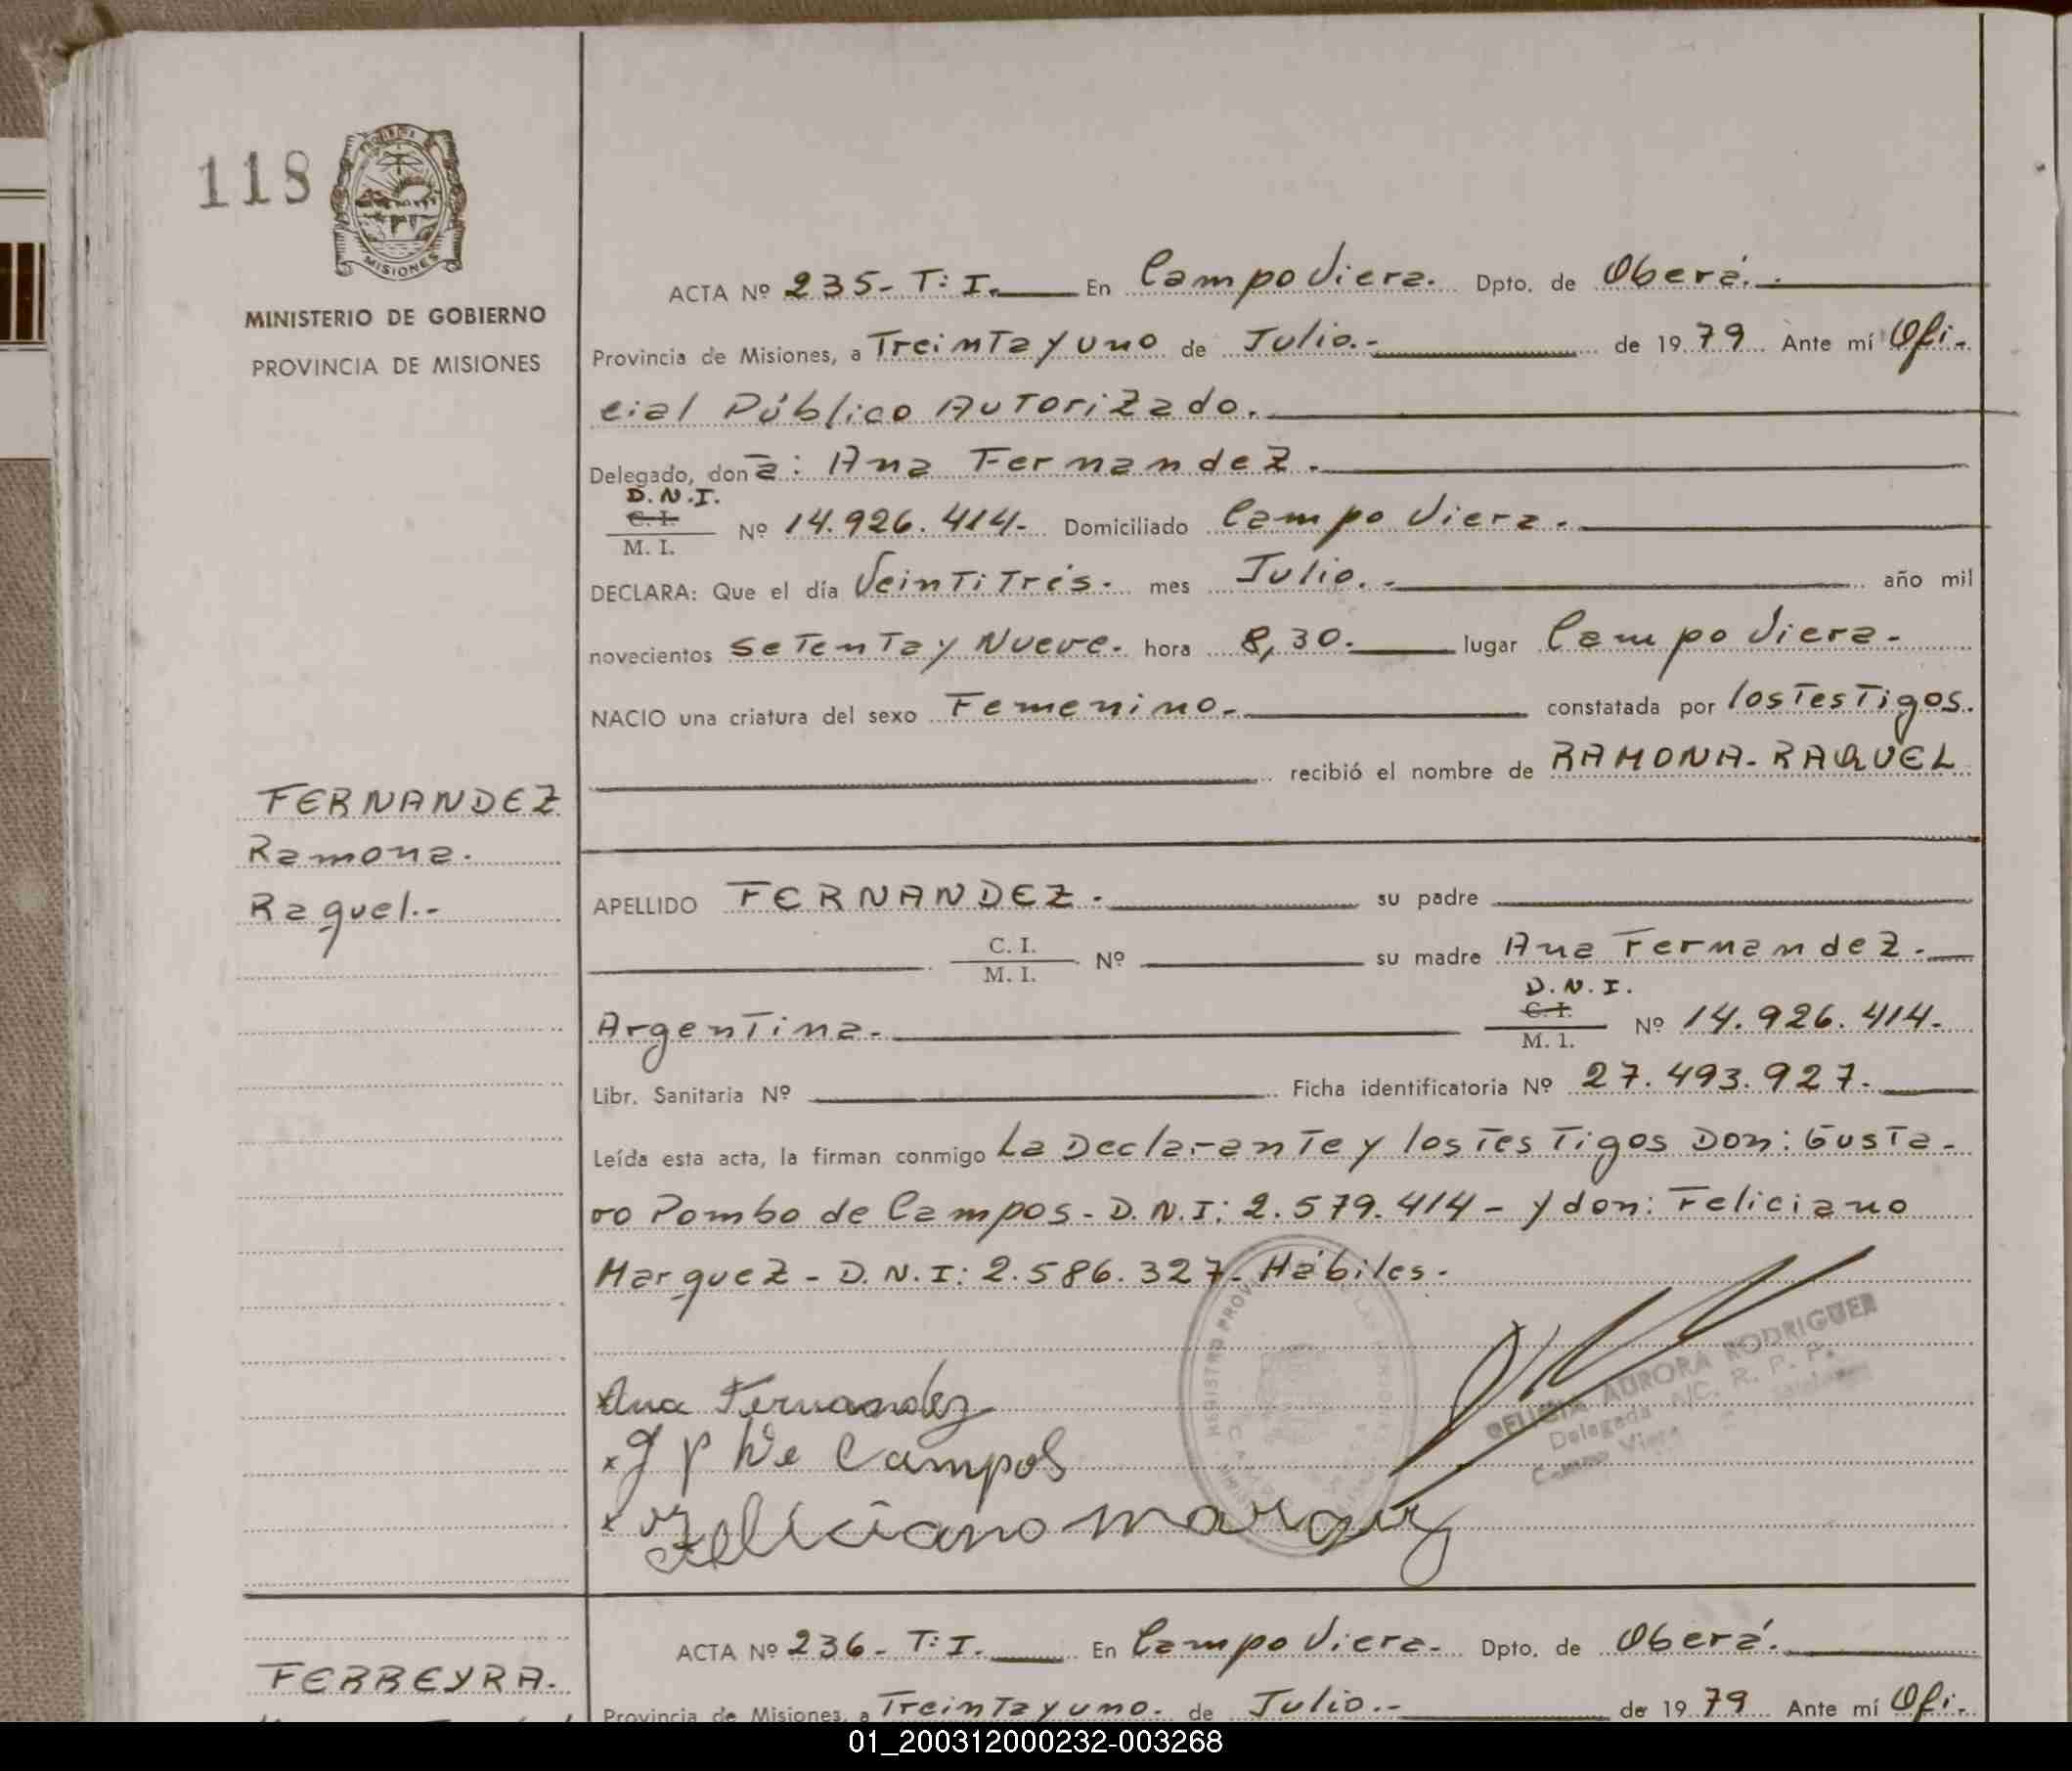 118
MISIONES
MINISTERIO DE GOBIERNO
PROVINCIA DE MISIONES
ACTA Nº 235- T: I. En Campo Viera. Dpto. de Oberá.
Provincia de Misiones, a Treinta y uno de Julio.- de 1979 Ante mí Ofi-
cial Público Autorizado.
Delegado, don a: Ana Fernandez.
D.N.I.
C. I.
M. I. Nº 14.926.414- Domiciliado Campo Viera.
DECLARA: Que el día Veintitrés. mes Julio.- año mil
novecientos setenta y Nueve. hora 8,30. lugar Campo Viera-
NACIO una criatura del sexo Femenino- constatada por los Testigos.
recibió el nombre de RAMONA-RAQUEL
FERNANDEZ
Ramona.
Raquel.-
APELLIDO FERNANDEZ. su padre
C. I.
M. I. Nº su madre Ana Fernandez.
Argentina. D.N.I.
C. I.
M. I. Nº 14.926.414-
Libr. Sanitaria Nº Ficha identificatoria Nº 27.493.927.
Leída esta acta, la firman conmigo La Declarante y los Testigos Don: Gusta-
vo Pombo de Campos- D.N.I: 2.579.414- y don: Feliciano
Marquez- D.N.I: 2.586.327- Hábiles.
REGISTRO PROV
AURORA RODRIGUER
Delegada A/C. R. P. P.
Campo Viera
Ana Fernandez
x g p De Campos
x Feliciano Marquez
ACTA Nº 236- T: I. En Campo Viera- Dpto. de Oberá.
FERREYRA.
Provincia de Misiones, a Treinta y uno. de Julio.- de 1979 Ante mí Ofi-
01_200312000232-003268